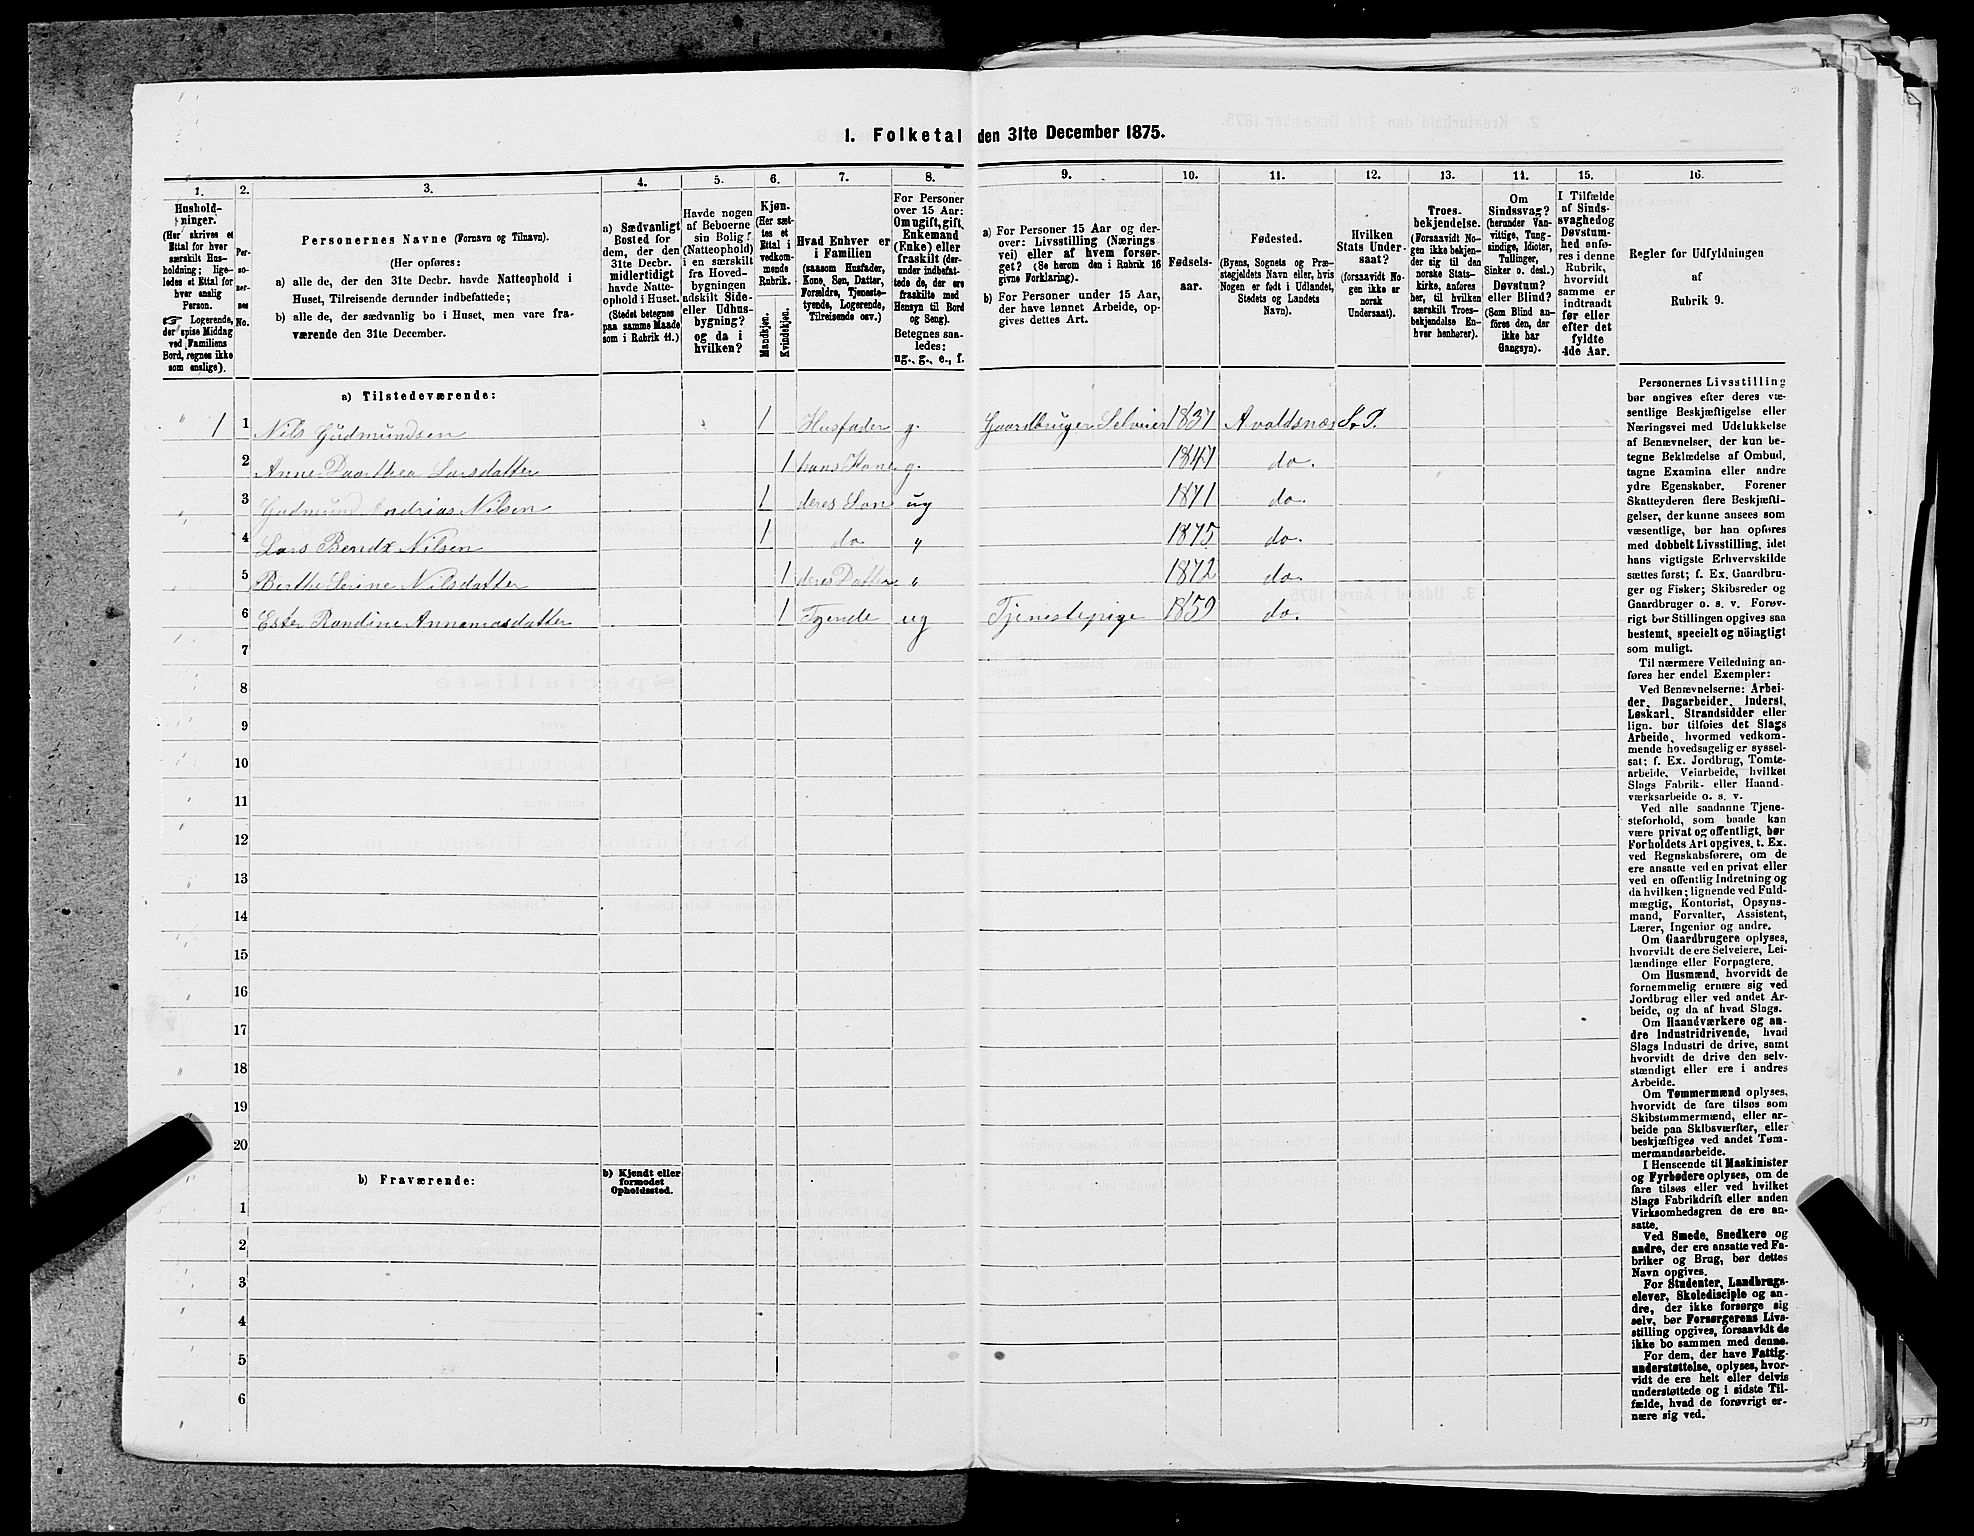 1. Folketal den 31te December 1875.
1. 2. 3. 4. 5. 6. 7. 8. 9. 10. 11. 12. 13. 14. 15. 16.
Hushold-
ninger.
(Her skrives et
Ettal for hver
særskilt Hus-
holdning; lige-
ledes et Ettal for
hver enslig
Person.
☞ Logerende,
der spise Middag
ved Familiens
Bord, regnes ikke
som enslige).
Per-
so-
ner-
nes
No.
Personernes Navne (Fornavn og Tilnavn).
(Her opføres:
a) alle de, der den 31te Decbr. havde Natteophold i
Huset, Tilreisende derunder indbefattede;
b) alle de, der sædvanlig bo i Huset, men vare fra-
værende den 31te December.
a) Sædvanligt
Bosted for
dem, der den
31te Decbr.
midlertidigt
havde Natte-
ophold i Huset.
(Stedet betegnes
paa samme Maade
som i Rubrik 11.)
Havde nogen
af Beboerne
sin Bolig
(Natteophold)
i en særskilt
fra Hoved-
bygningen
adskilt Side-
eller Udhus-
bygning?
og da i
hvilken?
Kjøn.
(Her sæt-
tes et
Ettal i
vedkom-
mende
Rubrik.
Mandkjøn.
Kvindekjøn.
Hvad Enhver er
i Familien
(saasom Husfader,
Kone, Søn, Datter,
Forældre, Tjeneste-
tyende, Logerende,
Tilreisende osv.)
For Personer
over 15 Aar:
Om ugift, gift,
Enkemand
(Enke) eller
fraskilt (der-
under indbefat-
tede de, der ere
fraskilte med
Hensyn til Bord
og Seng).
Betegnes saa-
ledes:
ug., g., e., f.
a) For Personer 15 Aar og der-
over: Livsstilling (Nærings
vei) eller af hvem forsør-
get? (Se herom den i Rubrik 16
givne Forklaring).
b) For Personer under 15 Aar,
der have lønnet Arbeide, op-
gives dettes Art.
Fødsels-
aar.
Fødested.
(Byens, Sognets og Præ-
stegjeldets Navn eller, hvis
Nogen er født i Udlandet,
Stedets og Landets
Navn).
Hvilken
Stats Under-
saat?
(forsaavidt No-
gen ikke er
norsk
Undersaat).
Troes-
bekjendelse.
(Forsaavidt No-
gen ikke bekjen-
der sig til den
norske Stats-
kirke, anføres
her, til hvilken
særskilt Troes-
bekjendelse En-
hver henhører).
Om
Sindssvag?
(herunder Van-
vittige, Tung-
sindige, Idioter,
Tullinger,
Sinker o. desl.)
Døvstum?
eller Blind?
(Som Blind an-
føres den, der
ikke har
Gangsyn).
I Tilfælde
af Sinds-
svaghed og
Døvstum-
hed anfø-
res i denne
Rubrik,
hvorvidt
samme er
indtraadt
før eller
efter det
fyldte
4de Aar.
Regler for Udfyldningen
af
Rubrik 9.
a) Tilstedeværende:
1 1 Nils Gudmundsen 1 Husfader g. Gaardbruger Selveier 1837 Avaldsnæs S. P.
2 Anne Daarthea Larsdatter 1 hans Kone g. 1847 do.
3 Gudmund Andrias Nilsen 1 deres Søn ug 1871 do.
4 Lars Bendx Nilsen 1 do " 1875 do.
5 Berthe Serine Nilsdatter 1 deres Datter " 1872 do.
6 Ester Randine Annamasdatter 1 Tyende ug Tjenestepige 1859 do.
7
8
9
10
11
12
13
14
15
16
17
18
19
20
b) Fraværende:
b) Kjendt eller
formodet
Opholdssted.
1
2
3
4
5
6
Personernes Livsstilling
bør angives efter deres væ-
sentlige Beskjæftigelse eller
Næringsvei med Udelukkelse
af Benævnelser, der kun be-
tegne Beklædelse af Ombud,
tagne Examina eller andre
ydre Egenskaber. Forener
Skatteyderen flere Beskjæfti-
gelser, der kunne ansees som
væsentlige, bør han opføres
med dobbelt Livsstilling, idet
hans vigtigste Erhvervskilde
sættes først; f. Ex. Gaardbru-
ger og Fisker; Skibsreder og
Gaardbruger o. s. v. Forøv-
rigt bør Stillingen opgives saa
bestemt, specielt og nøiagtigt
som muligt.
Til nærmere Veiledning an-
føres her endel Exempler:
Ved Benævnelserne: Arbei-
der, Dagarbeider, Inderst,
Løskarl, Strandsidder eller
lign. bør tilføies det Slags
Arbeide, hvormed vedkom-
mende hovedsagelig er syssel-
sat; f. Ex. Jordbrug, Tomte-
arbeide, Veiarbeide, hvilket
Slags Fabrik- eller Haand-
værksarbeide o. s. v.
Ved alle saadanne Tjene-
steforhold, som baade kan
være privat og offentligt, bør
Forholdets Art opgives, t. Ex.
ved Regnskabsførere, om de
ere ansatte ved en privat eller
ved en offentlig Indretning og
da hvilken; lignende ved Fuld-
mægtig, Kontorist, Opsyns-
mand, Forvalter, Assistent,
Lærer, Ingeniør og andre.
Om Gaardbrugere oplyses,
hvorvidt de ere Selveiere, Lei-
lændinge eller Forpagtere.
Om Husmænd, hvorvidt de
fornemmelig ernære sig ved
Jordbrug eller ved andet Ar-
beide, og da af hvad Slags.
Om Haandværkere og an-
dre Industridrivende, hvad
Slags Industri de drive, samt
hvorvidt de drive den selv-
stændigt eller ere i andres
Arbeide.
Om Tømmermænd oplyses,
hvorvidt de fare tilsøs som
Skibstømmermænd, eller ar-
beide paa Skibsværfter, eller
beskjæftiges ved andet Tøm-
mermandsarbeide.
I Henseende til Maskinister
og Fyrbødere oplyses, om de
fare tilsøs eller ved hvilket
Slags Fabrikdrift eller anden
Virksomhedsgren de ere an-
satte.
Ved Smede, Snedkere og
andre, der ere ansatte ved Fa-
briker og Brug, bør dettes
Navn opgives.
For Studenter, Landbrugs-
elever, Skoledisciple og an-
dre, der ikke forsørge sig
selv, bør Forsørgerens Livs-
stilling opgives, forsaavidt de
ikke bo sammen med denne.
For dem, der have Fattig-
understøttelse, oplyses, hvor-
vidt de ere helt eller delvis
understøttede og i sidste Til-
fælde, hvad de forøvrigt er-
nære sig ved.